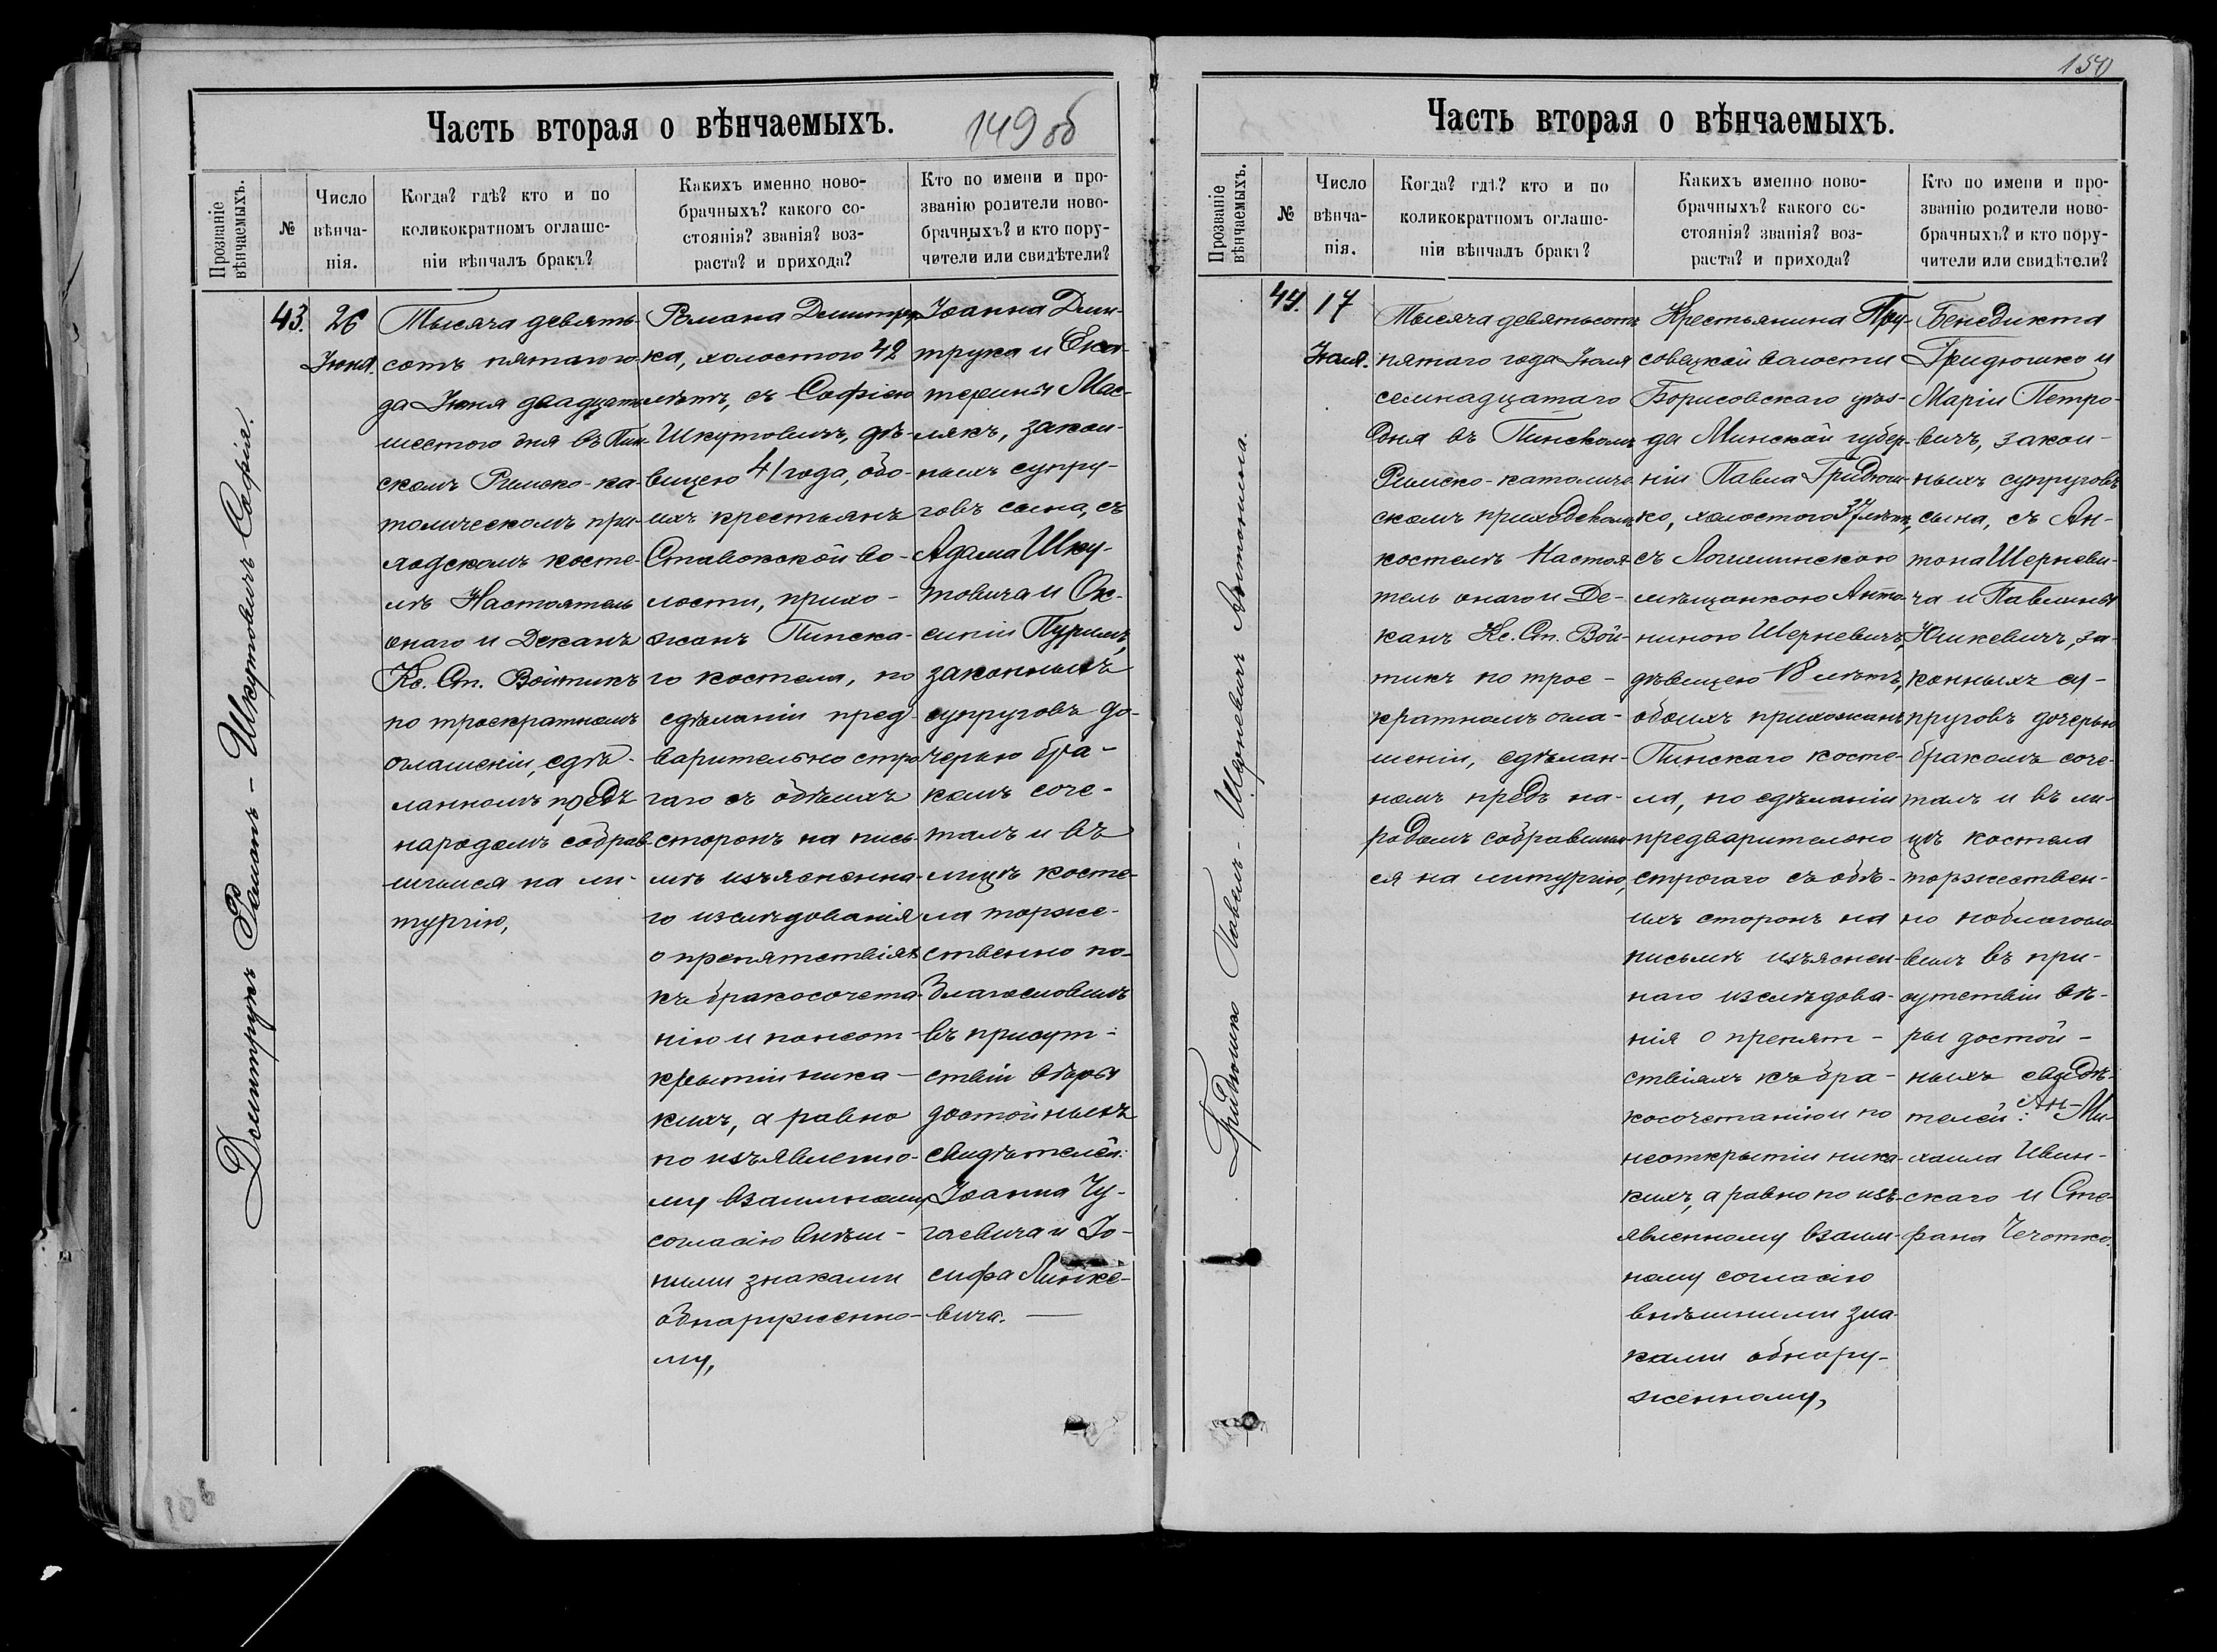 149 об
Часть вторая о вѣнчаемыхъ.
Прозваніе вѣнчаемыхъ.
№
Число
вѣнча-
нія.
Когда? гдѣ? кто и по
коликократномъ оглаше-
ніи вѣнчалъ бракъ?
Какихъ именно ново-
брачныхъ? какого со-
стоянія? званія? воз-
раста? и прихода?
Кто по имени и про-
званію родители ново-
брачныхъ? и кто пору-
чители или свидѣтели?
Дмитрукъ Романъ - Шкутовичъ Софія.
43.
26
Іюня.
Тысяча девять-
сотъ пятаго го-
да Іюня двадцать
шестого дня въ Пин-
скомъ Римско-ка-
толическомъ при-
ходскомъ косте-
лѣ Настоятель
онаго и Деканъ
Кс. Ст. Войтикъ
по троекратномъ
оглашеніи, сдѣ-
ланномъ предъ
народомъ собрав-
шимся на ли-
тургію,
Романа Дмитру-
ка, холостого 42
лѣтъ, съ Софіею
Шкутовичъ, дѣ-
вицею 41 года, обо-
ихъ крестьянъ
Ставокской во-
лости, прихо-
жанъ Пинска-
го костела, по
сдѣланіи пред-
варительно стро
гаго съ обѣихъ
сторонъ на пись-
мѣ изъясненна-
го изслѣдованія
о препятствіяхъ
къ бракосочета-
нію и по неот-
крытіи ника-
кихъ, а равно
по изъявленно-
му взаимному
согласію внѣш-
ними знаками
обнаруженно-
му,
Іоанна Дми-
трука и Ека-
терины Мас-
лякъ, закон-
ныхъ супру-
говъ сына, съ
Адама Шку-
товича и Ок-
синіи Пуримъ,
законныхъ
супруговъ до-
черью бра-
комъ соче-
талъ и въ
лицѣ косте-
ла торже-
ственно по-
благословилъ
въ присут-
ствіи вѣры
достойныхъ
свидѣтелей:
Іоанна Чу-
гаевича и Іо-
сифа Линке-
вича.
106
150
Часть вторая о вѣнчаемыхъ.
Прозваніе вѣнчаемыхъ.
№
Число
вѣнча-
нія.
Когда? гдѣ? кто и по
коликократномъ оглаше-
ніи вѣнчалъ бракъ?
Какихъ именно ново-
брачныхъ? какого со-
стоянія? званія? воз-
раста? и прихода?
Кто по имени и про-
званію родители ново-
брачныхъ? и кто пору-
чители или свидѣтели?
Гридюшко Павелъ - Шерневичъ Антонина.
44.
17
Іюля.
Тысяча девятьсотъ
пятаго года Іюля
семнадцатаго
дня въ Пинскомъ
Римско-католиче
скомъ приходскомъ
костелѣ Настоя-
тель онаго и Де-
канъ Кс. Ст. Вой-
тикъ по трое-
кратномъ огла-
шеніи, сдѣлан-
номъ предъ на-
родомъ собравшим-
ся на литургію,
Крестьянина Пру-
совецкой волости
Борисовскаго уѣз-
да Минской губер-
ніи Павла Гридюш-
ко, холостого 37 лѣтъ,
съ Логишинскою
мѣщанкою Анто-
ниною Шерневичъ,
дѣвицею 18 лѣтъ,
обоихъ прихожанъ
Пинскаго косте-
ла, по сдѣланіи
предварительно
строгаго съ обѣ-
ихъ сторонъ на
письмѣ изъяснен-
наго изслѣдова-
нія о препят-
ствіяхъ къ бра-
косочетанію и по
неоткрытіи ника-
кихъ, а равно по изъ-
явленному взаим-
ному согласію
внѣшними зна-
ками обнару-
женному,
Бенедикта
Гридюшко и
Маріи Петро-
вичъ, закон-
ныхъ супруговъ
сына, съ Ан-
тона Шерневи-
ча и Павлины
Юшкевичъ, за-
конныхъ су-
пруговъ дочерью
бракомъ соче-
талъ и въ ли-
цѣ костела
торжествен-
но поблагосло-
вилъ въ при-
сутствіи вѣ-
ры достой-
ныхъ свидѣ-
телей: Ми-
хаила Ивин-
скаго и Сте-
фана Чечотко.